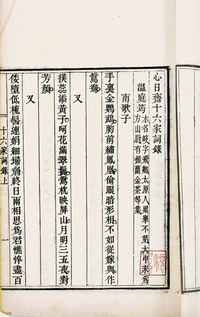 心日齋十六家詞錄
溫庭筠
本名岐字飛卿太原人累舉不第大中末為
方山尉有握蘭金荃等集
南歌子
手裏金鸚鵡胸前繡鳳凰偷眼暗形相不如從嫁與作
鴛鴦
又
撲蕊添黃子呵花滿翠鬟鴛枕映屏山月明三五夜對
芳顏
又
倭墮低梳髻連娟細掃眉終日兩相思為君憔悴盡百
十六家詞錄上
一